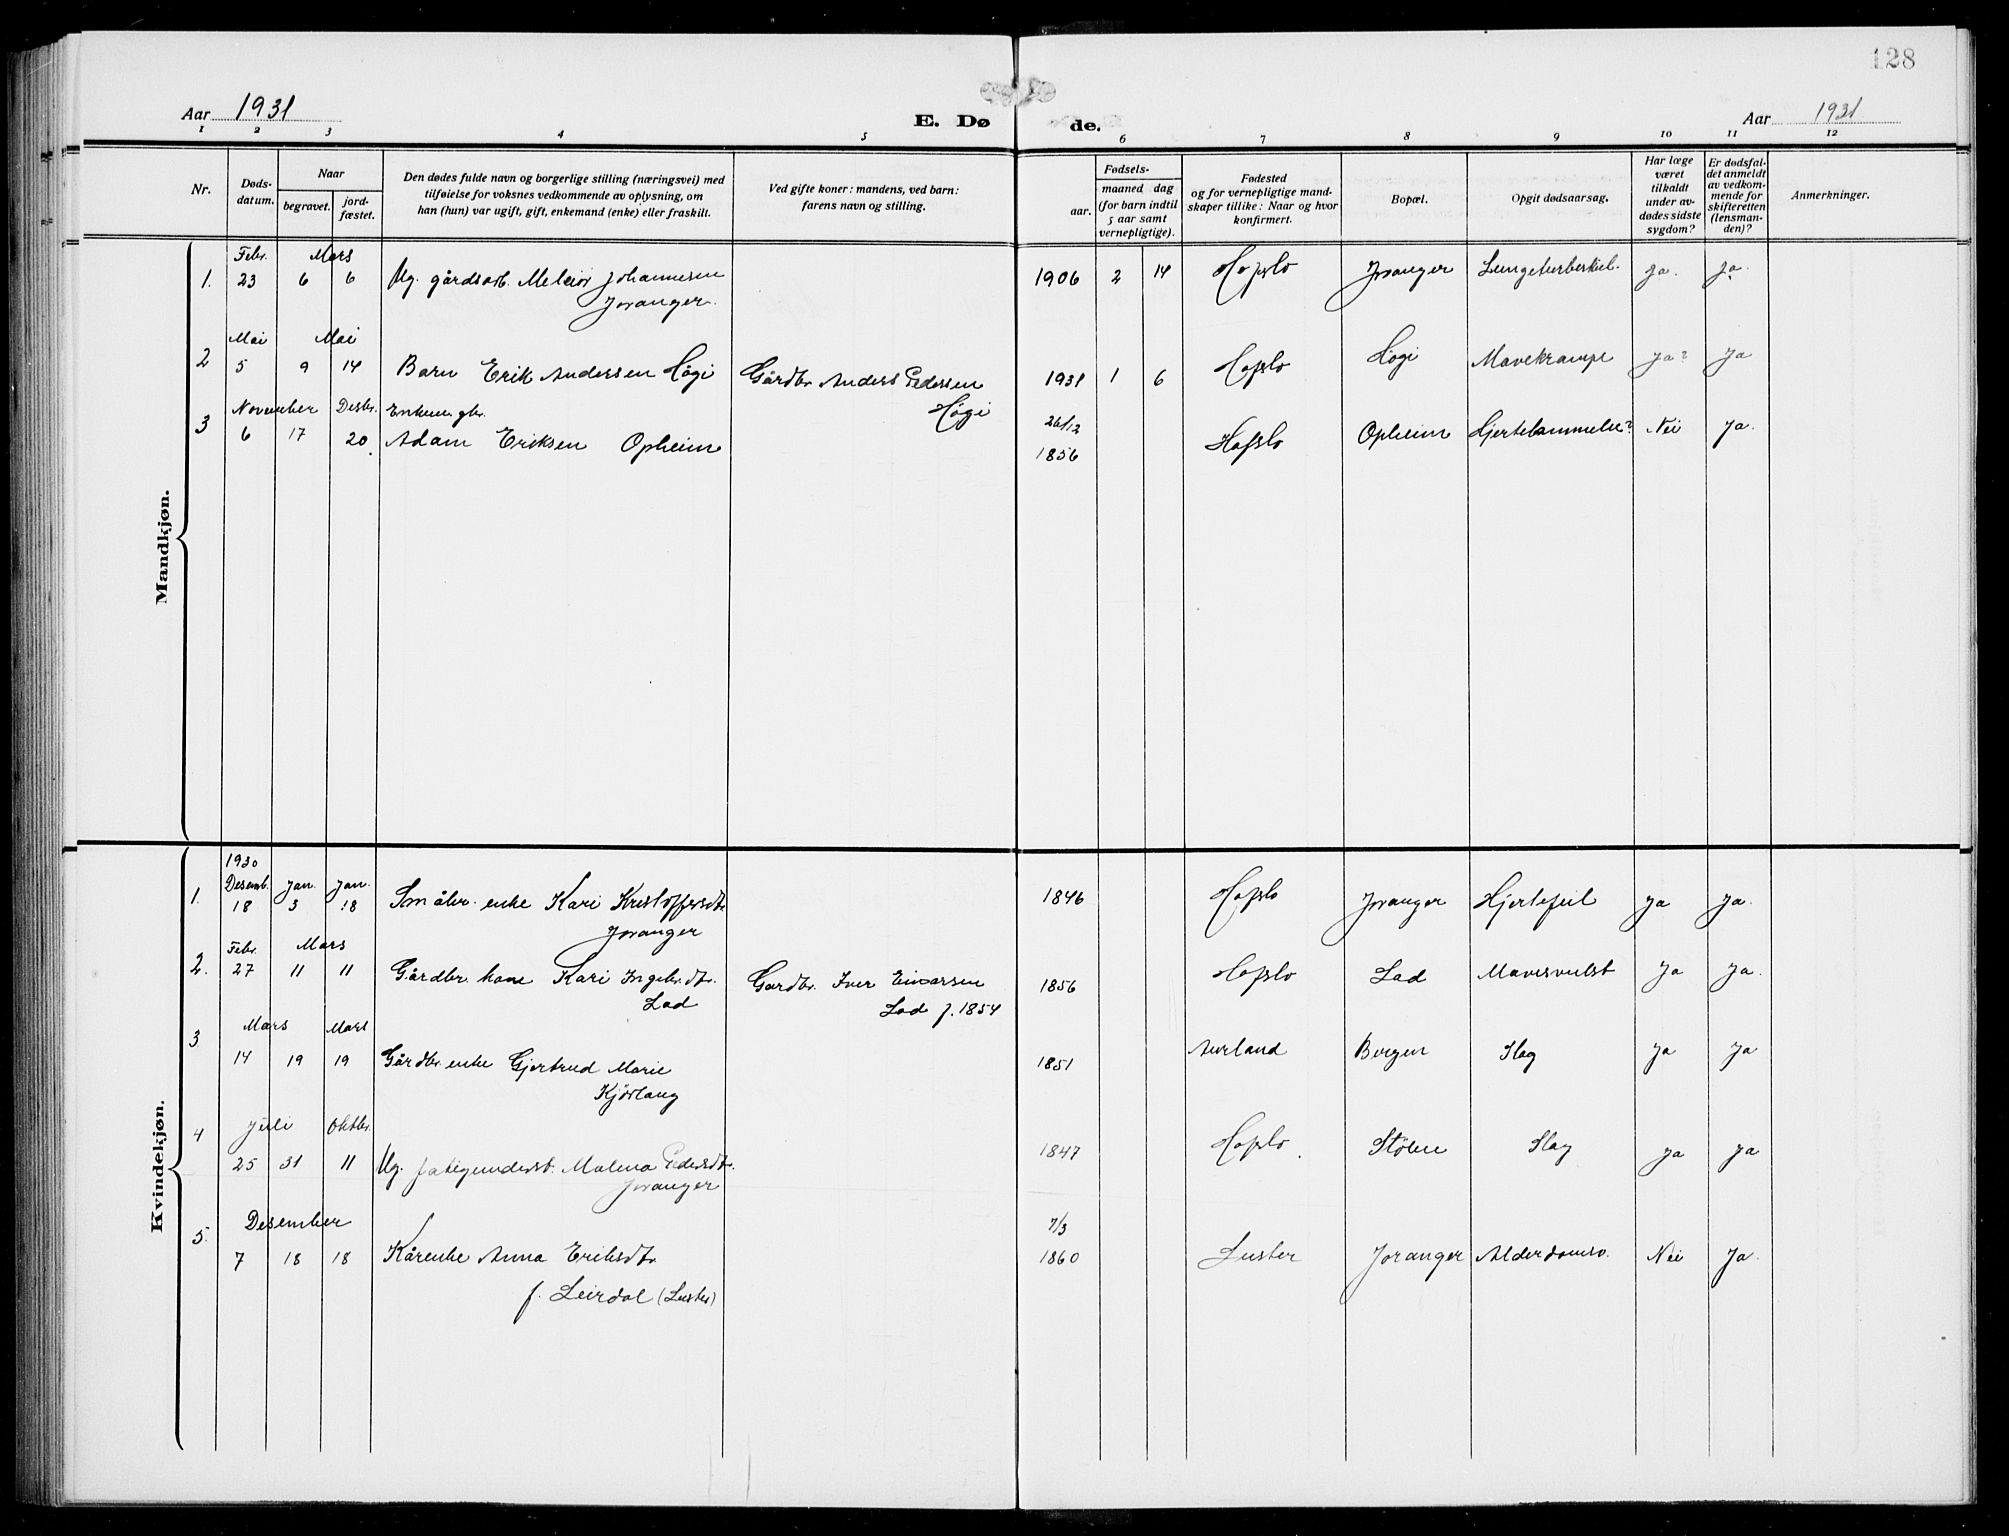 128
Aar 1931
E. Dø
de.
Aar 1931
1 2 3 4 5 6 7 8 9 10 11 12
Nr.
Døds-
datum.
Naar
begravet.
jord-
fæstet.
Den dødes fulde navn og borgerlige stilling (næringsvei) med
tilføielse for voksnes vedkommende av oplysning, om
han (hun) var ugift, gift, enkemand (enke) eller fraskilt.
Ved gifte koner: mandens, ved barn:
farens navn og stilling.
Fødsels-
aar.
maaned dag
(for barn indtil
5 aar samt
vernepligtige).
Fødested
og for vernepligtige mand-
skaper tillike: Naar og hvor
konfirmert.
Bopæl.
Opgit dødsaarsag.
Har læge
været
tilkaldt
under av-
dødes sidste
sygdom?
Er dødsfal-
det anmeldt
av vedkom-
mende for
skifteretten
(lensman-
den)?
Anmerkninger.
Mandkjøn.
Febr. Mars
1. 23 6 6 Ug. gårdsarb. Meleiør Johannesen 1906 2 14 Hafslo Joranger Lungetuberkul. Ja. Ja.
Joranger.
Mai Mai
2 5 9 14 Barn Erik Andersen Høgi Gårdbr. Anders Pedersen 1931 1 6 Hafslo Høgi Mavekrampe Ja? Ja
Høgi
November Desbr. Enkem. gbr. 26/12
3 6 17 20. Adam Eriksen Opheim 1856 Hafslo Opheim Hjertelammelse? Nei Ja.
Kvindekjøn.
1930
Desemb. Jan. Jan.
1. 18 3 18 Småbr. enke Kari Kristoffersdtr. 1846 Hafslo Joranger Hjertefeil Ja Ja.
Joranger
Febr. Mars
2. 27 11 11 Gårdbr. kone Kari Ingebr.dtr. Gardbr. Iver Einarsen 1856 Hafslo Lad Mavesvulst Ja Ja.
Lad Lad f. 1854
Mars Mars
3 14 19 19 Gårdbr. enke Gjertrud Marie 1851 Aurland Bergen Slag Ja Ja
Kjørlaug
Juli Oktbr.
4 25 31 11 Ug. fatigunderst. Malena Pedersdtr. 1847 Hafslo Stølen Slag Ja Ja
Joranger
Desember 7/3
5. 7 18 18 Kårenke Anna Eriksdtr. 1860 Luster Joranger Alderdomsv. Nei Ja.
f. Leirdal (Luster)